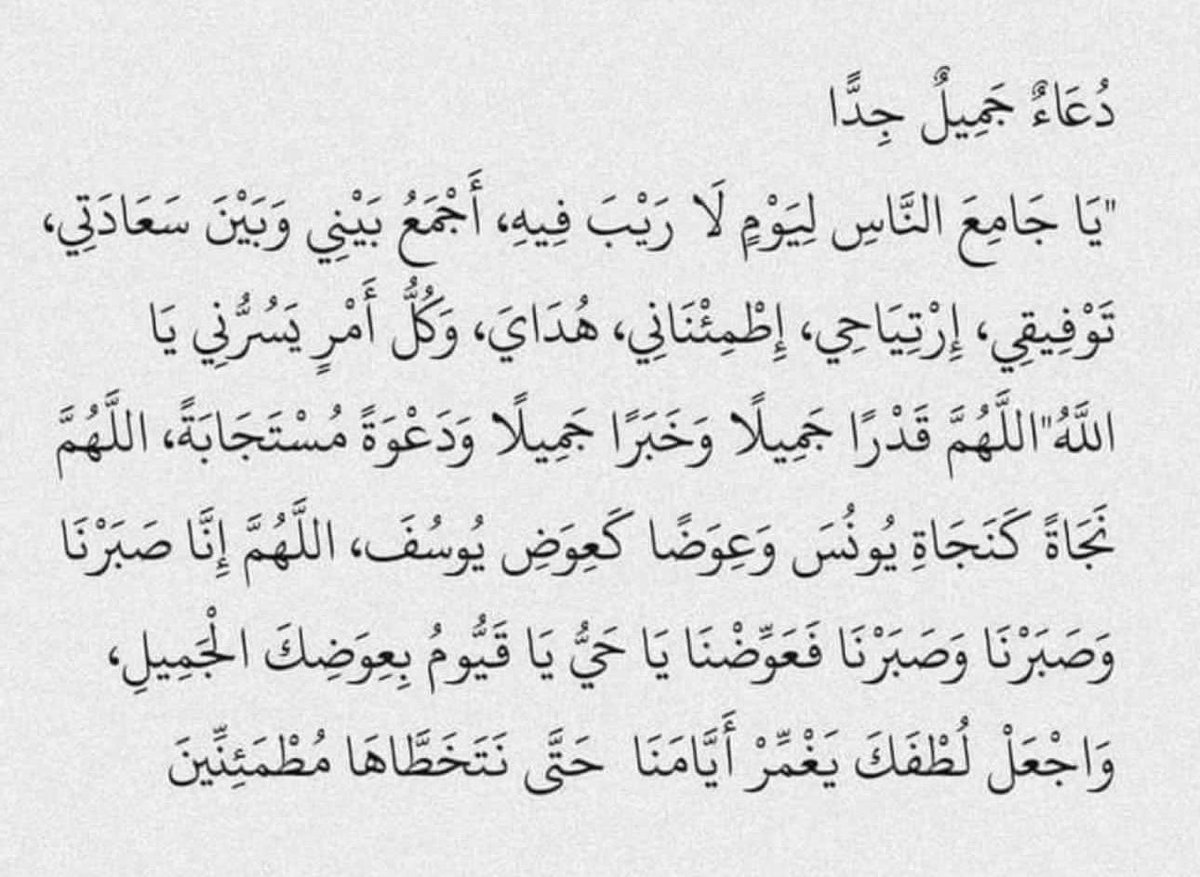 دُعَاءٌ جَمِيلٌ جِدًّا
"يَا جَامِعَ النَّاسِ لِيَوْمٍ لَا رَيْبَ فِيهِ، أَجْمَعُ بَيْنِي وَبَيْنَ سَعَادَتِي،
تَوْفِيقِي، إِرْتِيَاحِي، إِطْمِئْنَانِي، هُدَايَ، وَكُلُّ أَمْرٍ يَسُرُّنِي يَا
اللَّهُ"اللَّهُمَّ قَدْرًا جَمِيلًا وَخَبَرًا جَمِيلًا وَدَعْوَةً مُسْتَجَابَةً، اللَّهُمَّ
نَجَاةً كَنَجَاةِ يُونُسَ وَعِوَضًا كَعِوَضِ يُوسُفَ، اللَّهُمَّ إِنَّا صَبَرْنَا
وَصَبَرْنَا وَصَبَرْنَا فَعَوِّضْنَا يَا حَيُّ يَا قَيُّومُ بِعِوَضِكَ الْجَمِيلِ،
وَاجْعَلْ لُطْفَكَ يَغْمِّرْ أَيَّامَنَا حَتَّى نَتَخَطَّاهَا مُطْمَئِنِّينَ